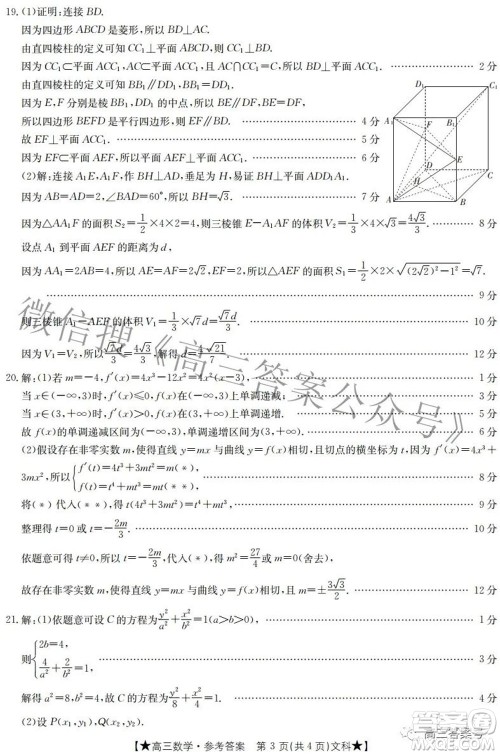 19.(1)证明:连接 BD.
因为四边形 ABCD 是菱形,所以 BD⊥AC.
由直四棱柱的定义可知 CC₁⊥平面 ABCD,则 CC₁⊥BD.
因为 CC₁⊂平面 ACC₁,AC⊂平面 ACC₁,且 AC∩CC₁=C,所以 BD⊥平面 ACC₁. 2 分
由直四棱柱的定义可知 BB₁∥DD₁,BB₁=DD₁.
因为 E,F 分别是棱 BB₁,DD₁ 的中点,所以 BE∥DF,BE=DF,
所以四边形 BEFD 是平行四边形,则 EF∥BD. 4 分
故 EF⊥平面 ACC₁. 5 分
因为 EF⊂平面 AEF,所以平面 AEF⊥平面 ACC₁. 6 分
D₁ C₁ A₁ B₁ F E D C H A B
(2)解:连接 A₁E,A₁F,作 BH⊥AD,垂足为 H,易证 BH⊥平面 ADD₁A₁.
因为 AB=AD=2,∠BAD=60°,所以 BH=√3. 7 分
因为△AA₁F 的面积 S₂=1/2×4×2=4,则三棱锥 E-A₁AF 的体积 V₂=1/3×4×√3=4√3/3. 8 分
设点 A₁ 到平面 AEF 的距离为 d,
因为 AA₁=2AB=4,所以 AE=AF=2√2,EF=2,所以△AEF 的面积 S₁=1/2×2×√((2√2)²-1²)=√7.
9 分
则三棱锥 A₁-AEF 的体积 V₁=1/3×√7d=√7d/3. 10 分
因为 V₁=V₂,所以√7d/3=4√3/3,解得 d=4√21/7. 12 分
20.解:(1)若 m=-4,f′(x)=4x³-12x²=4x²(x-3), 1 分
当 x∈(-∞,3)时,f′(x)≤0,f(x)在(-∞,3)上单调递减; 3 分
当 x∈(3,+∞)时,f′(x)>0,f(x)在(3,+∞)上单调递增. 5 分
故 f(x)的单调递减区间为(-∞,3),单调递增区间为(3,+∞). 6 分
(2)假设存在非零实数 m,使得直线 y=mx 与曲线 y=f(x)相切,且切点的横坐标为 t,因为 f′(x)=4x³+
3mx²,所以{f′(t)=4t³+3mt²=m(*), f(t)=t⁴+mt³=mt(**), 8 分
将(*)代入(**),得 t(4t³+3mt²)=t⁴+mt³, 9 分
整理得 t=0 或 t=-2m/3. 10 分
依题意可得 t≠0,所以 t=-2m/3,代入(*),得 m²=27/4 或 m=0(舍去),
故存在非零实数 m,使得直线 y=mx 与曲线 y=f(x)相切,且 m=±3√3/2. 12 分
21.解:(1)依题意可设 C 的方程为y²/a²+x²/b²=1(a>b>0), 1 分
则{2b=4, 4/a²+2/b²=1, 3 分
解得 a²=8,b²=4,故 C 的方程为y²/8+x²/4=1. 4 分
(2)设 P(x₁,y₁),Q(x₂,y₂).
【★高三数学·参考答案 第 3 页(共 4 页)文科★】
微信搜《高三答案公众号》
高三答案号